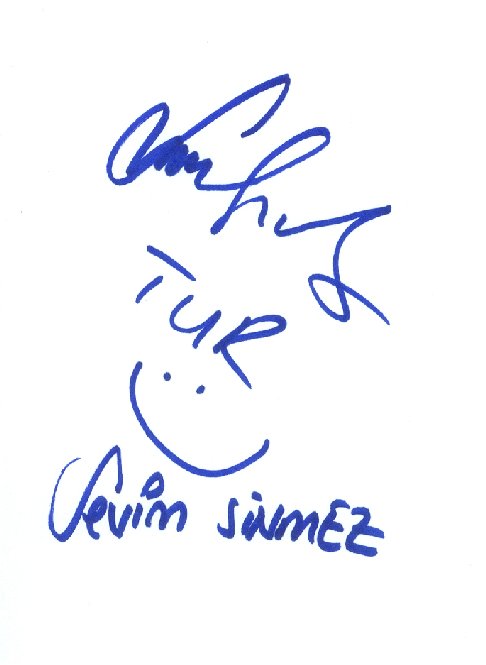 TUR
Sevim SiNMEZ